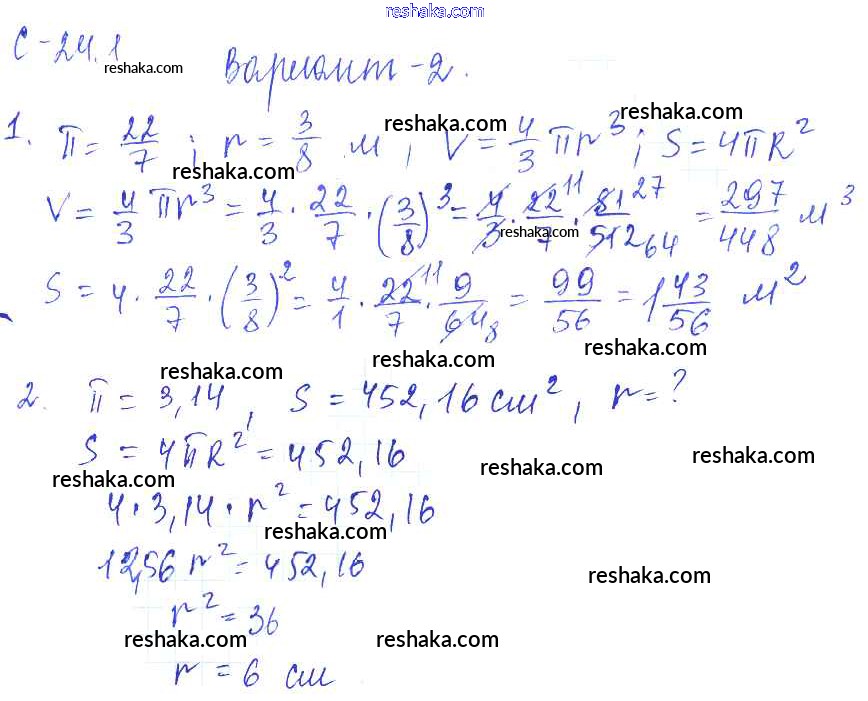 reshaka.com
С-24.1
reshaka.com
Вариант-2.
1. π = 22/7 ; r = 3/8 м, V = 4/3 πr³; S = 4πR²
reshaka.com reshaka.com
reshaka.com
V = 4/3 πr³ = 4/3 · 22/7 · (3/8)³ = 4/3 · 22 11/7 · 81 27/512 64 = 297/448 м³
reshaka.com
S = 4 · 22/7 · (3/8)² = 4/1 · 22 11/7 · 9/64 8 = 99/56 = 1 43/56 м²
reshaka.com
reshaka.com reshaka.com
2. π = 3,14, S = 452,16 см², r = ?
S = 4πR² = 452,16
reshaka.com reshaka.com reshaka.com
4 · 3,14 · r² = 452,16
reshaka.com
12,56 r² = 452,16
reshaka.com
r² = 36
reshaka.com reshaka.com
r = 6 см